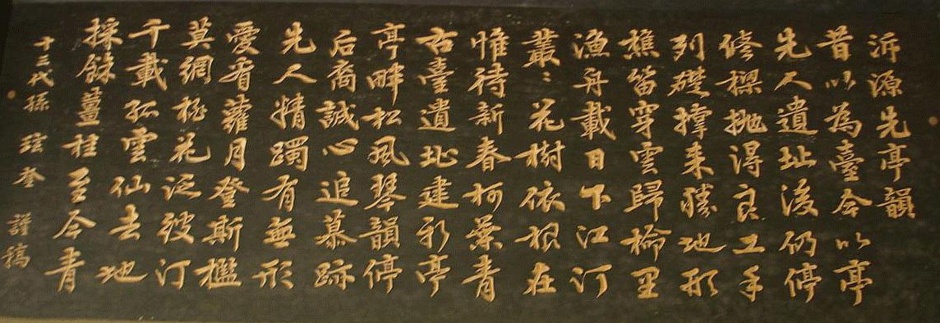 泝源先亭韻
昔以為臺今以亭
先人遺址後仍停
修樑抛得良工手
列礎撑来勝地形
樵笛穿雲歸楡里
漁舟載日下江汀
叢〻花樹依根在
惟待新春柯葉青
古臺遺址建新亭
亭畔松風琴韻停
后裔誠心追慕跡
先人精躅有無形
愛看蘿月登斯檻
莫網桃花泛彼汀
千載孤雲仙去地
採餘薑桂至今青
十三代孫 奎 謹稿